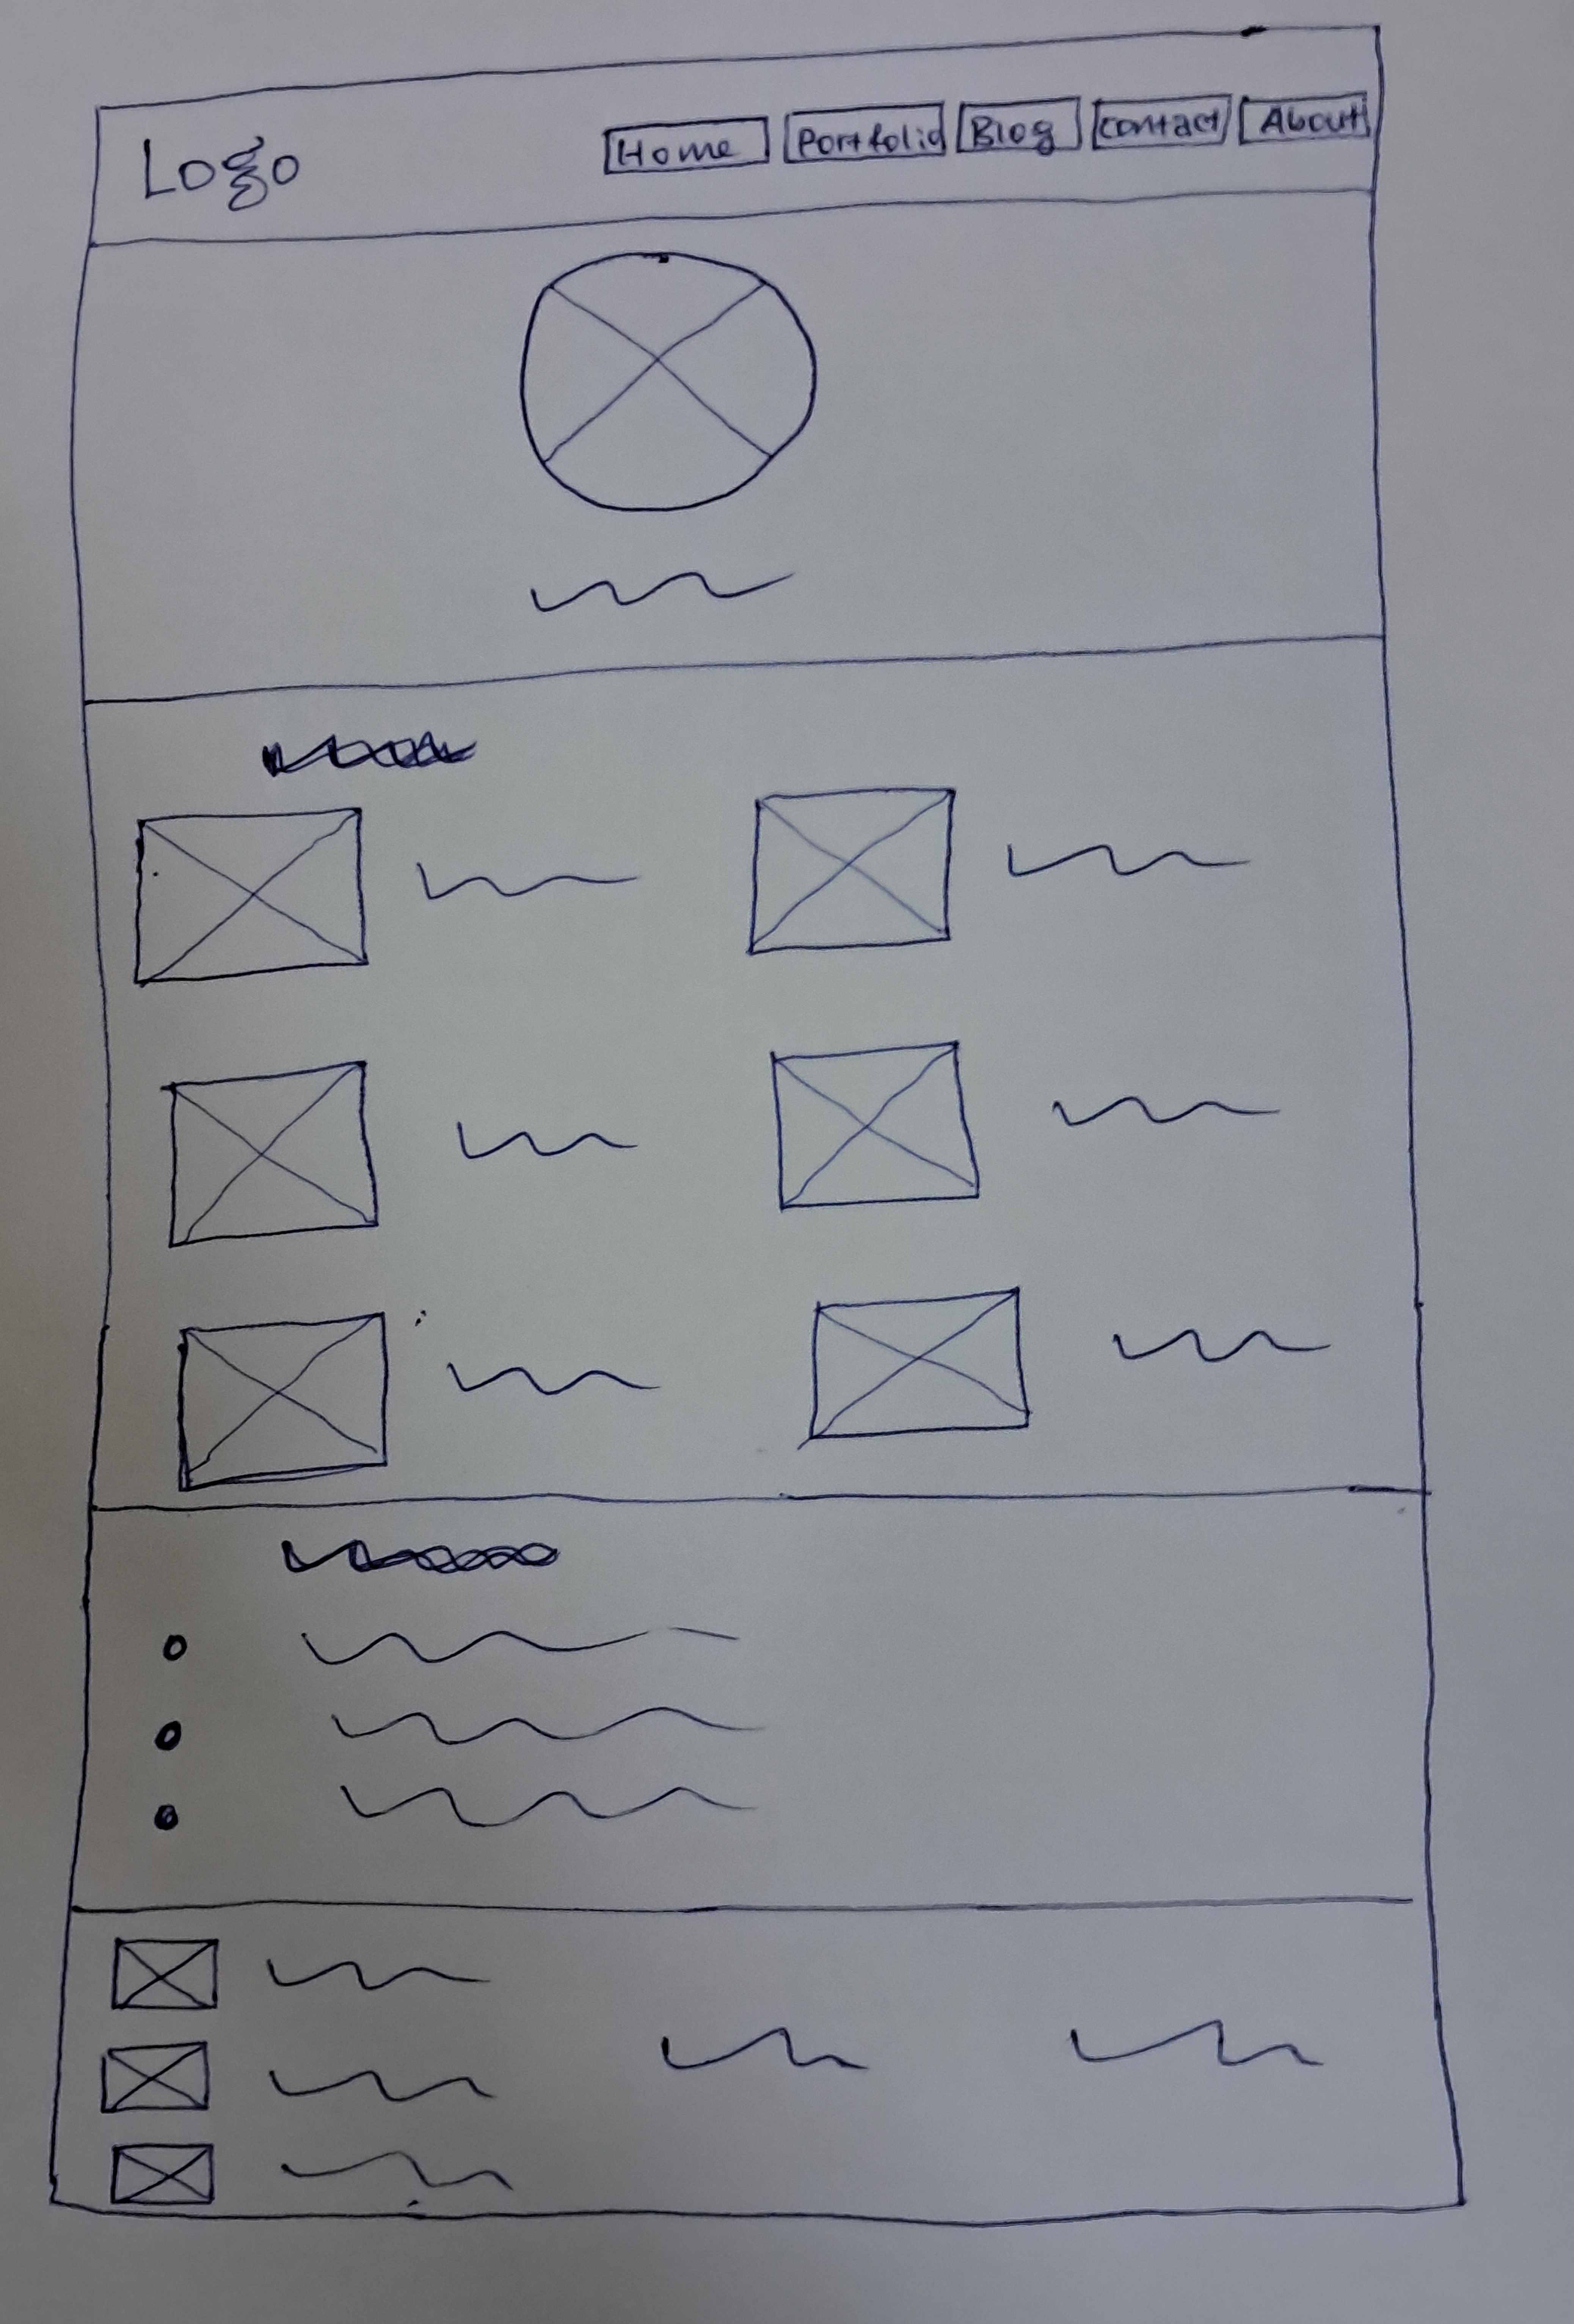 Logo
Home Portfolio Blog Contact About